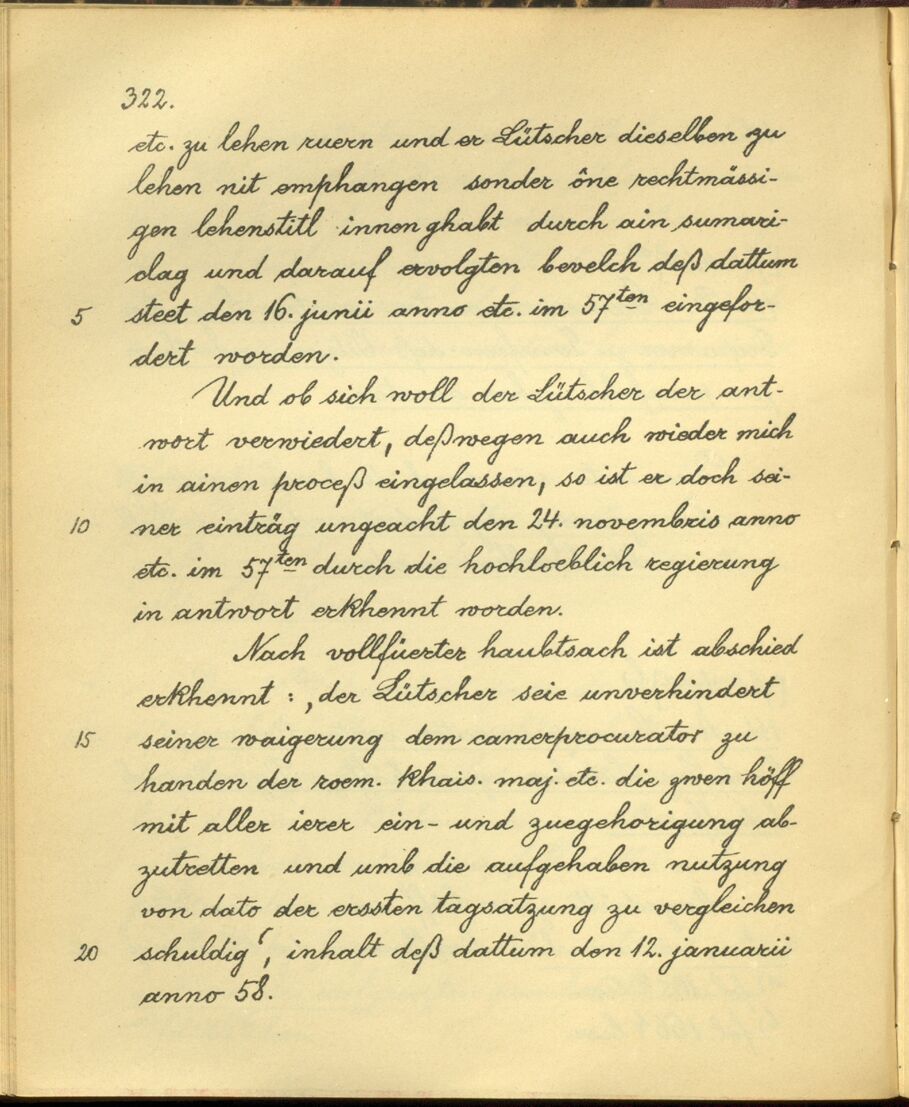 322.
etc. zu lehen ruern und er Lütscher dieselben zu
lehen nit emphangen sonder öne rechtmässi-
gen lehenstitl innen ghabt durch ain sumari-
clag und darauf ervolgten bevelch deß dattum
5 steet den 16. junii anno etc. im 57ten eingefor-
dert worden.
Und ob sich woll der Lütscher der ant-
wort verwiedert, deßwegen auch wieder mich
in ainen proceß eingelassen, so ist er doch sei-
10 ner einträg ungeacht den 24. novembris anno
etc. im 57ten durch die hochloeblich regierung
in antwort erkhennt worden.
Nach vollfüerter haubtsach ist abschied
erkhennt : ‚der Lütscher seie unverhindert
15 seiner waigerung dem camerprocurator zu
handen der roem. khais. maj. etc. die zwen höff
mit aller ierer ein- und zuegehorigung ab-
zutretten und umb die aufgehaben nutzung
von dato der erssten tagsatzung zu vergleichen
20 schuldig‘, inhalt deß dattum den 12. januarii
anno 58.